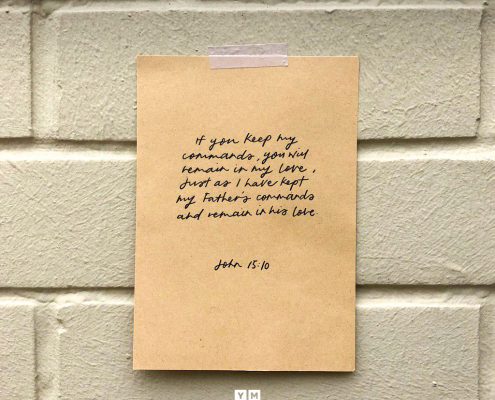 If you keep my
commands, you will
remain in my love,
just as I have kept
my Father's commands
and remain in his love.
John 15:10
Y M